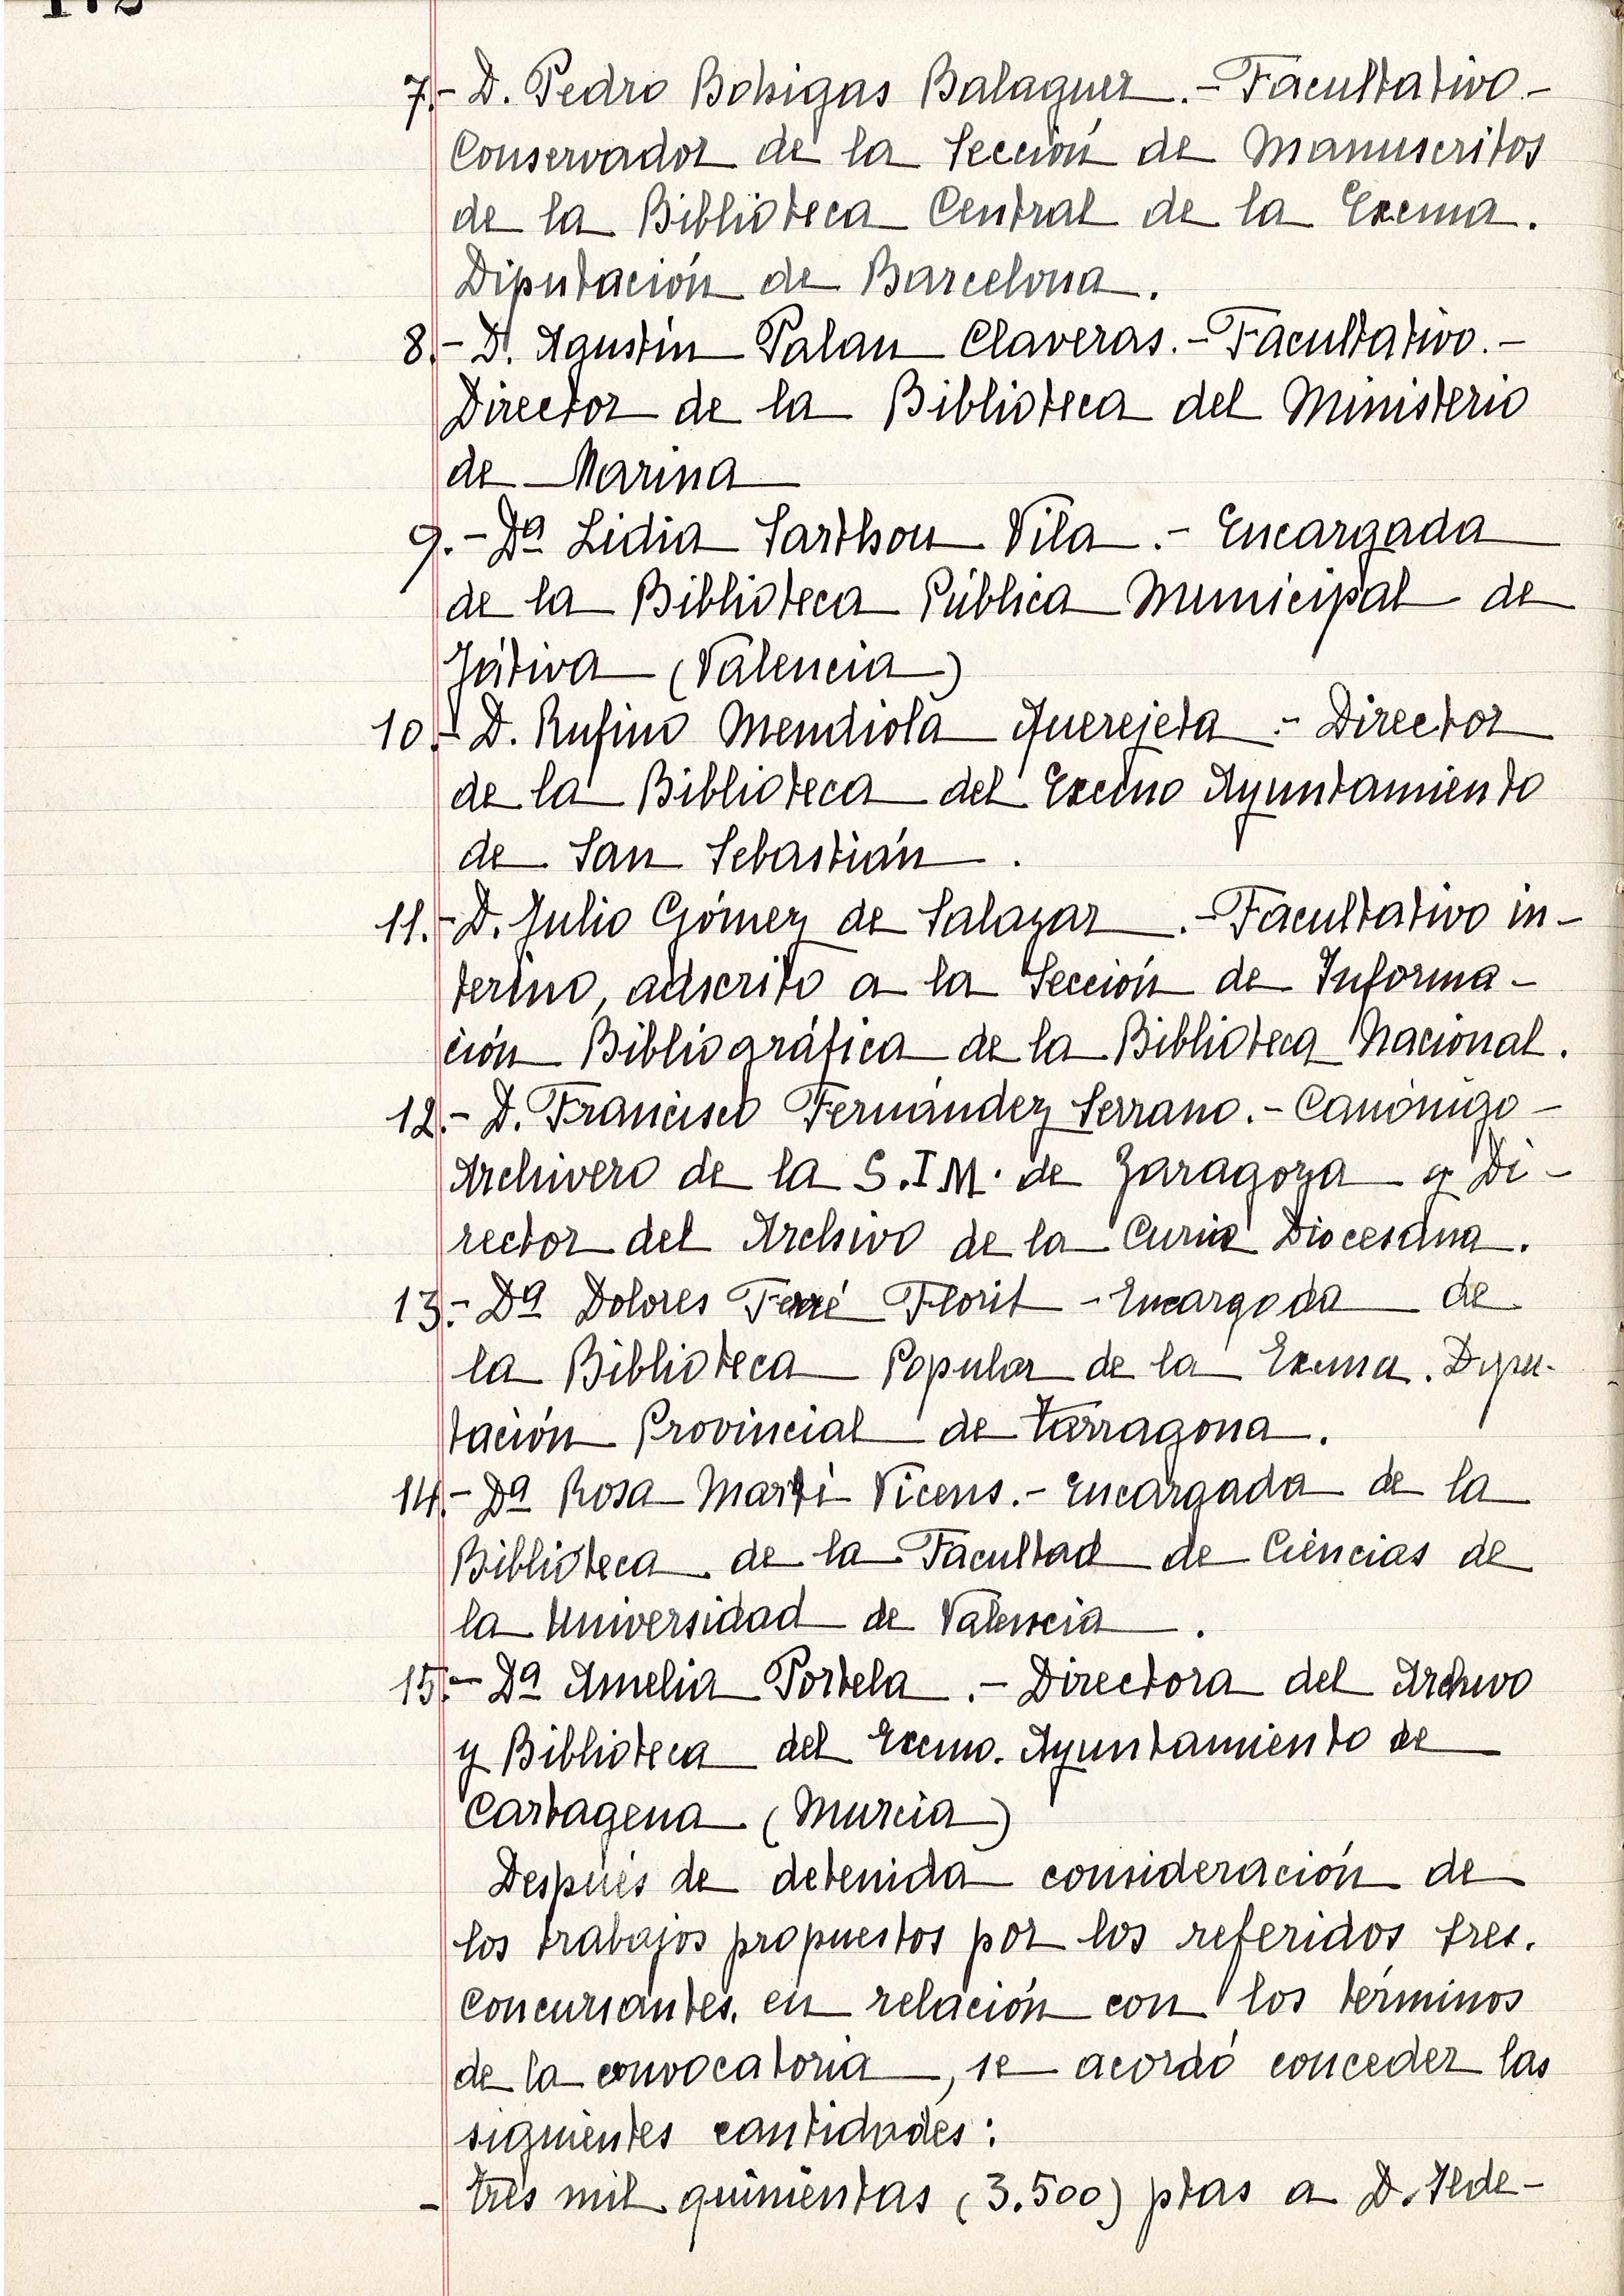 7.- D. Pedro Bohigas Balaguer.- Facultativo.-
Conservador de la Sección de Manuscritos
de la Biblioteca Central de la Excma.
Diputación de Barcelona.
8.- D. Agustín Palau Claveras.- Facultativo.-
Director de la Biblioteca del Ministerio
de Marina
9.- Dª Lidia Sarthou Vila.- Encargada
de la Biblioteca Pública Municipal de
Játiva (Valencia)
10.- D. Rufino Mendiola Querejeta.- Director
de la Biblioteca del Excmo Ayuntamiento
de San Sebastián.
11.- D. Julio Gómez de Salazar.- Facultativo in-
terino, adscrito a la Sección de Informa-
ción Bibliográfica de la Biblioteca Nacional.
12.- D. Francisco Fernández Serrano.- Canónigo-
Archivero de la S.I.M. de Zaragoza y Di-
rector del Archivo de la Curia Diocesana.
13.- Dª Dolores Ferré Florit - Encargada de
la Biblioteca Popular de la Excma. Dipu-
tación Provincial de Tarragona.
14.- Dª Rosa Martí Vicens.- Encargada de la
Biblioteca de la Facultad de Ciencias de
la Universidad de Valencia.
15.- Dª Amelia Portela.- Directora del Archivo
y Biblioteca del Excmo. Ayuntamiento de
Cartagena (Murcia)
Después de detenida consideración de
los trabajos propuestos por los referidos sres.
concursantes, en relación con los términos
de la convocatoria, se acordó conceder las
siguientes cantidades:
- Tres mil quinientas (3.500) ptas a D.